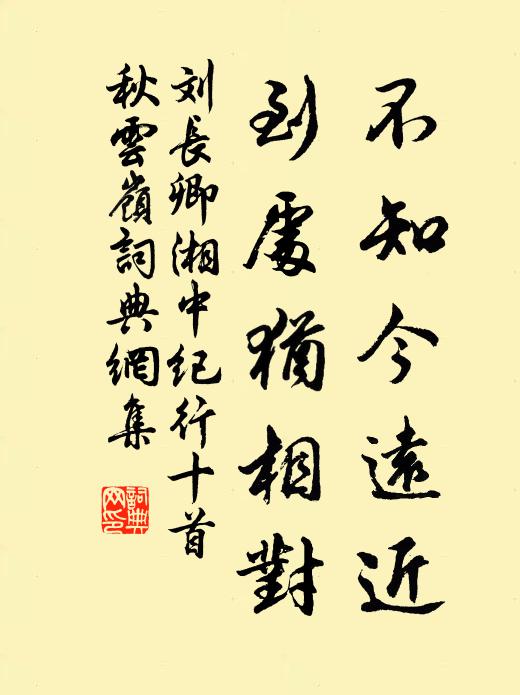 不知今遠近
到處猶相對
刘長卿湘中纪行十首
秋雲嶺詞典網集
詞典网印